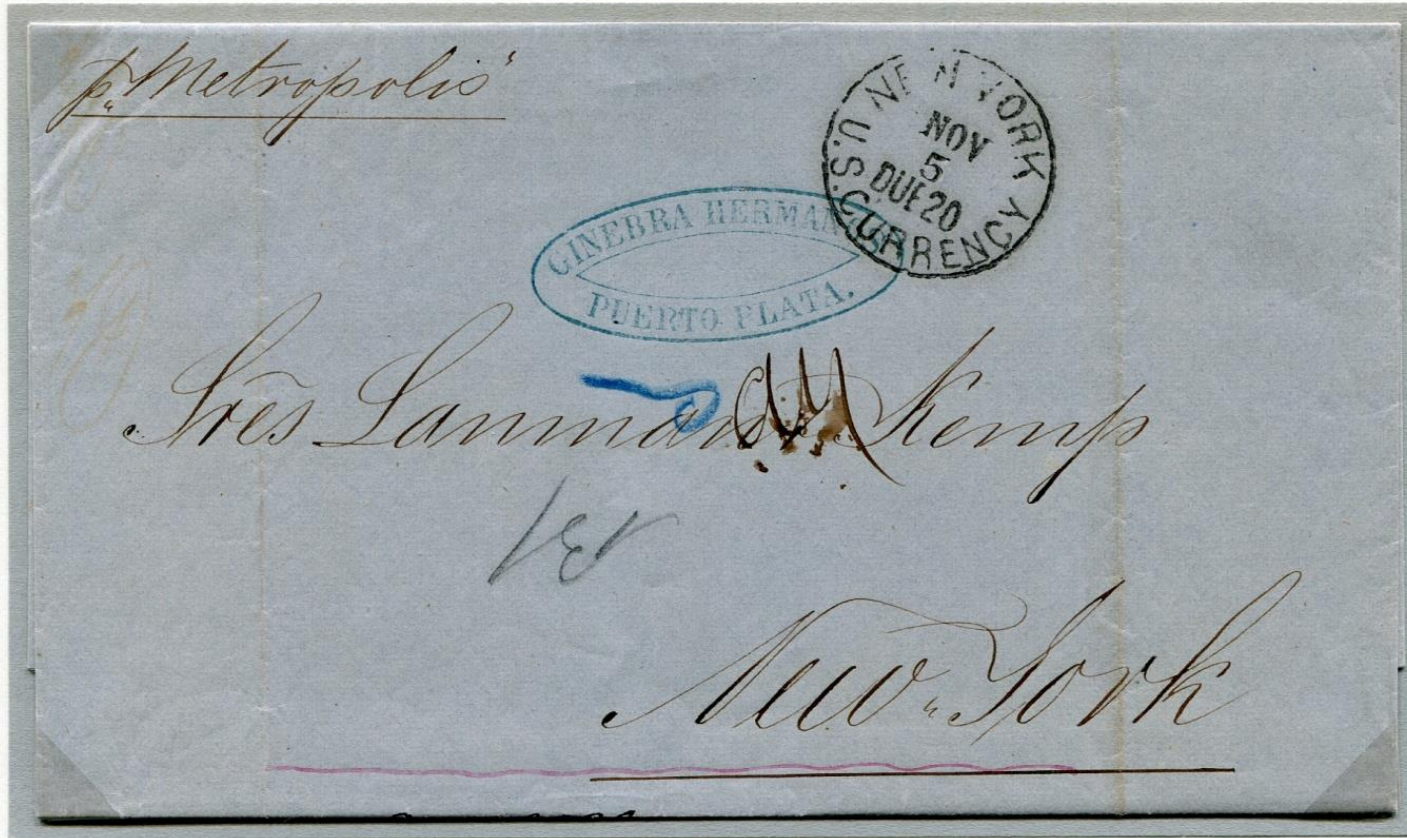 p. "Metropolis"
NEW YORK
NOV
5
DUE 20
U.S. CURRENCY
GINEBRA HERMANOS
PUERTO PLATA.
Sres Lanman & Kemp
131
New York